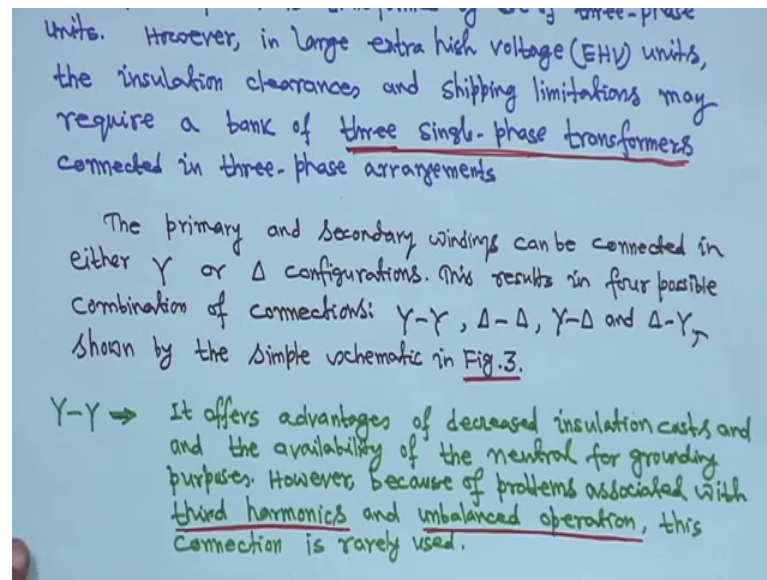 three-phase
units. However, in large extra high voltage (EHV) units,
the insulation clearances and shipping limitations may
require a bank of three single-phase transformers
connected in three-phase arrangements
The primary and secondary windings can be connected in
either Y or Δ configurations. This results in four possible
combination of connections: Y-Y, Δ-Δ, Y-Δ and Δ-Y,
shown by the simple schematic in Fig.3.
Y-Y → It offers advantages of decreased insulation costs and
and the availability of the neutral for grounding
purposes. However, because of problems associated with
third harmonics and unbalanced operation, this
connection is rarely used.